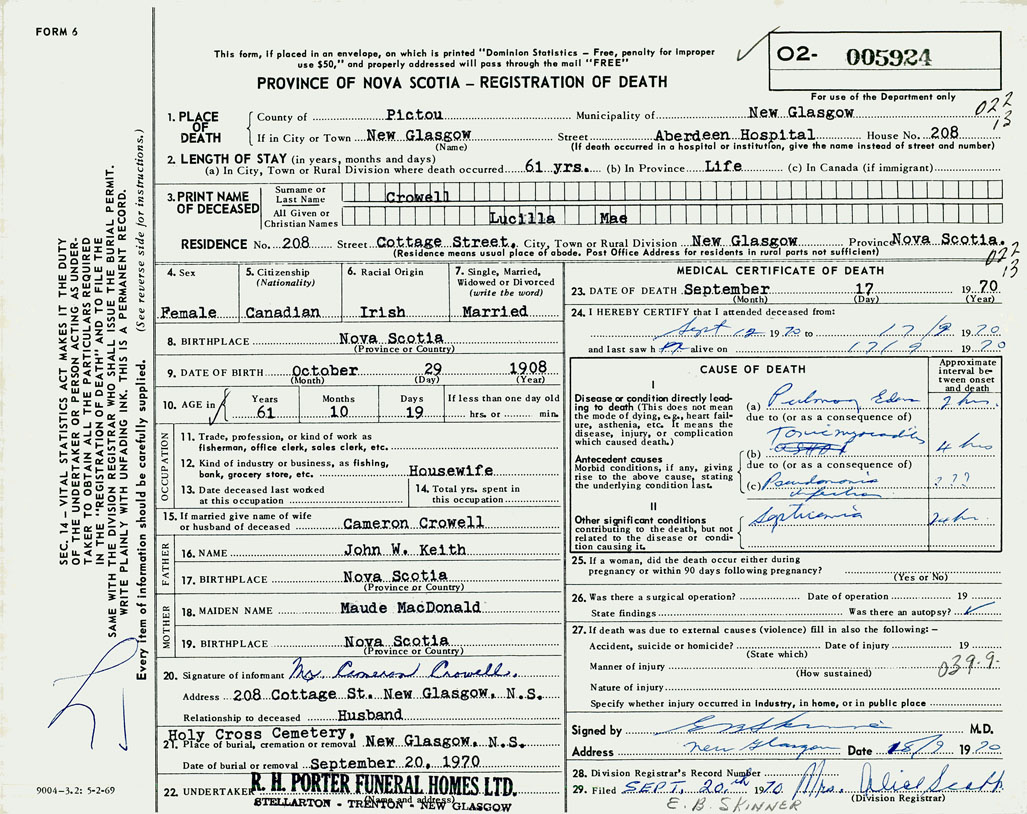 FORM 6
This form, if placed in an envelope, on which is printed "Dominion Statistics – Free, penalty for improper
use $50," and properly addressed will pass through the mail "FREE"
PROVINCE OF NOVA SCOTIA – REGISTRATION OF DEATH
02- 005924
For use of the Department only
022
13
1. PLACE OF DEATH
County of Pictou Municipality of New Glasgow
If in City or Town New Glasgow Street Aberdeen Hospital House No. 208
(Name) (If death occurred in a hospital or institution, give the name instead of street and number)
2. LENGTH OF STAY (in years, months and days)
(a) In City, Town or Rural Division where death occurred 61 yrs. (b) In Province Life (c) In Canada (if immigrant)
3. PRINT NAME OF DECEASED
Surname or Last Name Crowell
All Given or Christian Names Lucilla Mae
RESIDENCE No. 208 Street Cottage Street, City, Town or Rural Division New Glasgow Province Nova Scotia.
(Residence means usual place of abode. Post Office Address for residents in rural parts not sufficient)
022
13
4. Sex
Female
5. Citizenship
(Nationality)
Canadian
6. Racial Origin
Irish
7. Single, Married,
Widowed or Divorced
(write the word)
Married
8. BIRTHPLACE Nova Scotia
(Province or Country)
9. DATE OF BIRTH October 29 1908
(Month) (Day) (Year)
10. AGE in
Years Months Days If less than one day old
61 10 19 hrs. or min.
OCCUPATION
11. Trade, profession, or kind of work as
fisherman, office clerk, sales clerk, etc.
12. Kind of industry or business, as fishing,
bank, grocery store, etc. Housewife
13. Date deceased last worked
at this occupation
14. Total yrs. spent in
this occupation
15. If married give name of wife
or husband of deceased Cameron Crowell
FATHER
16. NAME John W. Keith
17. BIRTHPLACE Nova Scotia
(Province or Country)
MOTHER
18. MAIDEN NAME Maude MacDonald
19. BIRTHPLACE Nova Scotia
(Province or Country)
20. Signature of informant Mrs Cameron Crowell.
Address 208 Cottage St. New Glasgow, N.S.
Relationship to deceased Husband
Holy Cross Cemetery,
21. Place of burial, cremation or removal New Glasgow, N.S.
Date of burial or removal September 20, 1970
22. UNDERTAKER R. H. PORTER FUNERAL HOMES LTD.
(Name and address)
STELLARTON - TRENTON - NEW GLASGOW
MEDICAL CERTIFICATE OF DEATH
23. DATE OF DEATH September 17 1970
(Month) (Day) (Year)
24. I HEREBY CERTIFY that I attended deceased from:
Sept 12 1970 to 17/9 1970
and last saw h er alive on 17/9 1970
CAUSE OF DEATH
Approximate
interval be-
tween onset
and death
I
Disease or condition directly lead-
ing to death (This does not
mean the mode of dying, e.g., heart fail-
ure, asthenia, etc. It means the
disease, injury, or complication
which caused death.)
(a) Pulmony Edema 2 hrs.
due to (or as a consequence of)
Antecedent causes
Morbid conditions, if any, giving
rise to the above cause, stating
the underlying condition last.
(b) Toxic myocarditis 4 hrs
due to (or as a consequence of)
(c) Pseudomonas infection ???
II
Other significant conditions
contributing to the death, but not
related to the disease or condi-
tion causing it.
Septicemia 24 hr.
25. If a woman, did the death occur either during
pregnancy or within 90 days following pregnancy?
(Yes or No)
26. Was there a surgical operation? Date of operation 19
State findings Was there an autopsy? ✓
27. If death was due to external causes (violence) fill in also the following: –
Accident, suicide or homicide? Date of injury 19
(State which)
Manner of injury
(How sustained)
039.9.
Nature of injury
Specify whether injury occurred in industry, in home, or in public place
Signed by E B Skinner M.D.
Address New Glasgow Date 18/9 1970
28. Division Registrar's Record Number
29. Filed SEPT. 20th 1970 Mrs. Alice Scott
(Division Registrar)
E. B. SKINNER
SEC. 14 – VITAL STATISTICS ACT MAKES IT THE DUTY
OF THE UNDERTAKER OR PERSON ACTING AS UNDER-
TAKER TO OBTAIN ALL THE PARTICULARS REQUIRED
IN THE "REGISTRATION OF DEATH" AND TO FILE THE
SAME WITH THE DIVISION REGISTRAR WHO SHALL ISSUE THE BURIAL PERMIT.
WRITE PLAINLY WITH UNFADING INK. THIS IS A PERMANENT RECORD.
Every item of information should be carefully supplied. (See reverse side for instructions.)
9004-3.2: 5-2-69